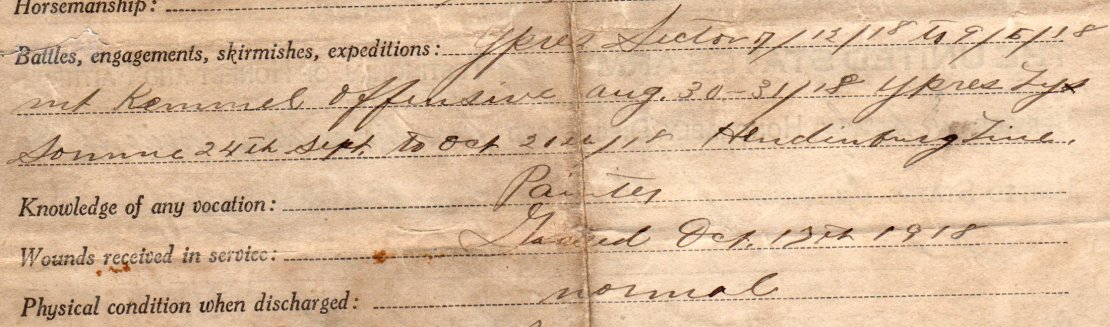 Horsemanship:
Battles, engagements, skirmishes, expeditions: Ypres Sector 7/12/18 to 9/5/18
mt Kemmel Offensive aug. 30-31/18 Ypres Lys
Somme 24th Sept. to Oct 21st/18 Hindinburg Line.
Knowledge of any vocation: Painter
Wounds received in service: Gassed Oct. 17th 1918
Physical condition when discharged: normal